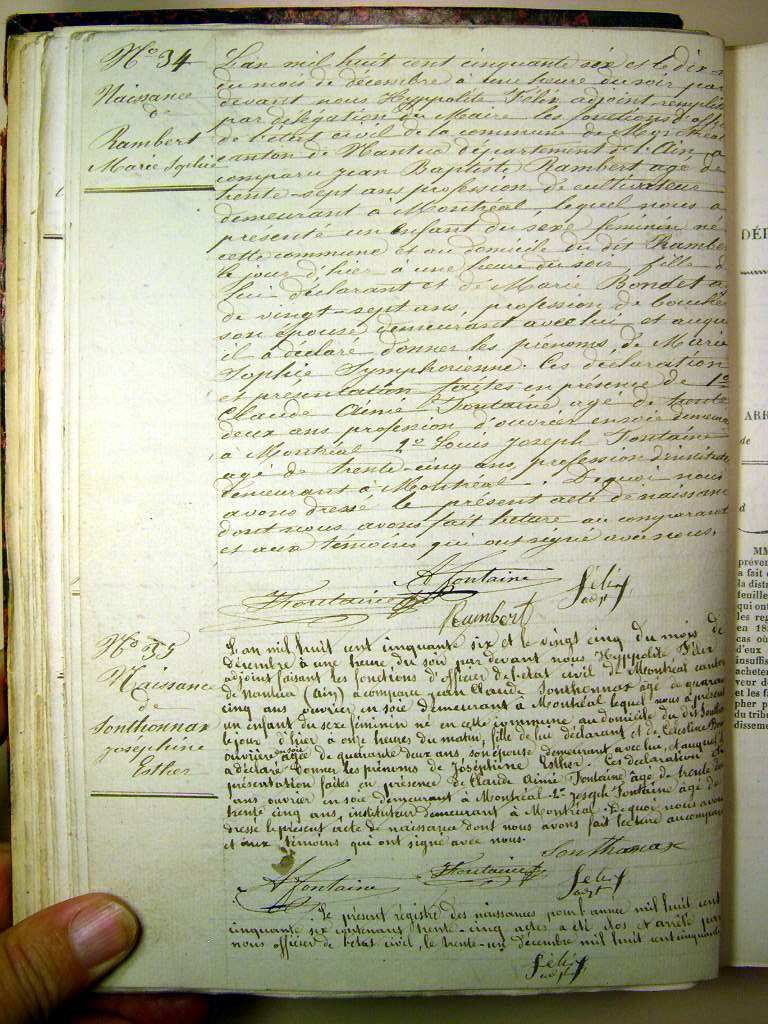 No 34
Naissance
de
Rambert
Marie Sophie
L'an mil huit cent cinquante six et le dix-
du mois de décembre à une heure du soir par
devant nous Hyppolite Félix adjoint remplis
par délégation du Maire les fonctions d'offi
de l'état civil de la commune de Montréal
canton de Nantua département de l'Ain, a
comparu jean Baptiste Rambert agé de
trente-sept ans profession de cultivateur
demeurant à Montréal, lequel nous a
présenté un enfant du sexe féminin né
cette commune et au domicile du dit Rambe
le jour d'hier à une heure du soir fille d
lui déclarant et de Marie Bondet a
de vingt-sept ans, profession de
son épouse demeurant avec lui et auqu
il a déclaré donner les prénoms de Marie
Sophie Symphorienne. Ces déclaration
et présentation faites en présence de 1o
Claude Aimé Fontaine agé de trente
deux ans profession d'ouvrier en soie demeura
à Montréal 2o Louis Joseph Fontaine
agé de trente-cinq ans, profession d'institute
demeurant à Montréal. De quoi nous
avons dressé le présent acte de naissan
dont nous avons fait lecture au comparant
et aux témoins qui ont signé avec nous.
A fontaine
Fontaine
Félix
adjt
Rambert
No 35
Naissance
de
Sonthonnax
Joséphine
Esther
L'an mil huit cent cinquante six et le vingt cinq du mois de
décembre à une heure du soir par devant nous Hyppolite Félix
adjoint faisant les fonctions d'officier de l'état civil de Montréal canton
de Nantua (Ain) a comparu jean Claude Sonthonnax agé de quaran
cinq ans ouvrier en soie demeurant à Montréal lequel nous a présent
un enfant du sexe féminin né en cette commune au domicile du dit Sonthon
le jour d'hier à onze heures du matin, fille de lui déclarant et de Célestine
ouvrière en soie agée de quarante deux ans, son épouse demeurant avec lui, et auquel
a déclaré donner les prénoms de Joséphine Esther. Ces déclaration et
présentation faites en présence de Claude Aimé Fontaine agé de trente deux
ans ouvrier en soie demeurant à Montréal 2o Joseph Fontaine agé de
trente cinq ans, instituteur demeurant à Montréal. De quoi nous avons
dressé le présent acte de naissance dont nous avons fait lecture au compara
et aux témoins qui ont signé avec nous.
Sonthonax
A fontaine
Fontaine
Félix
adjt
Le présent registre des naissances pour l'année mil huit cent
cinquante six contenant trente-cinq actes a été clos et arrêté par
nous officier de l'état civil, le trente-un décembre mil huit cent cinquante
Félix
adjt
DÉP
ARR
de
d
MM
préven
a fait
la distri
feuille
qui ont
les reg
en 18
cas où
d'eux
insuffis
acheter
veur de
et les fa
pher p
du tribu
dissemen